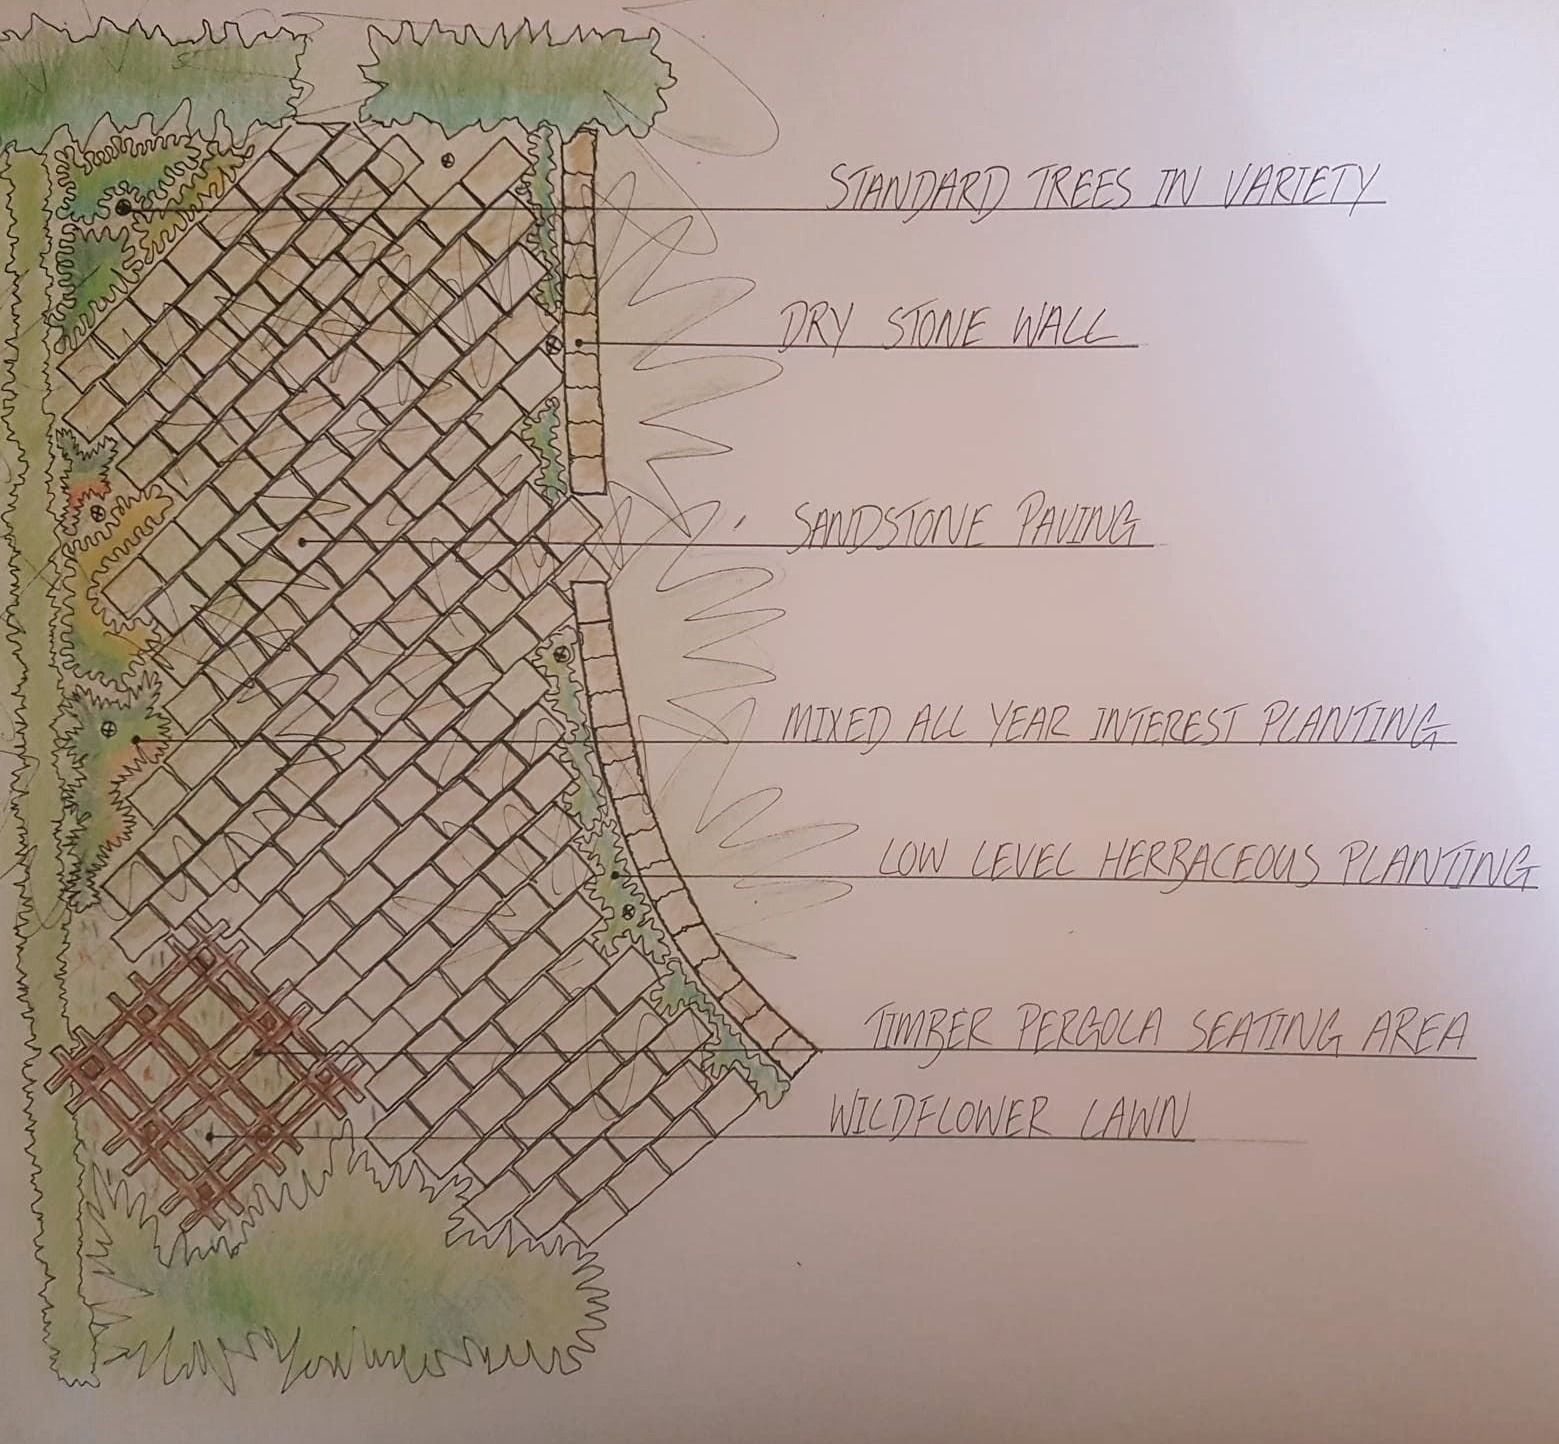 STANDARD TREES IN VARIETY
DRY STONE WALL
SANDSTONE PAVING
MIXED ALL YEAR INTEREST PLANTING
LOW LEVEL HERBACEOUS PLANTING
TIMBER PERGOLA SEATING AREA
WILDFLOWER LAWN